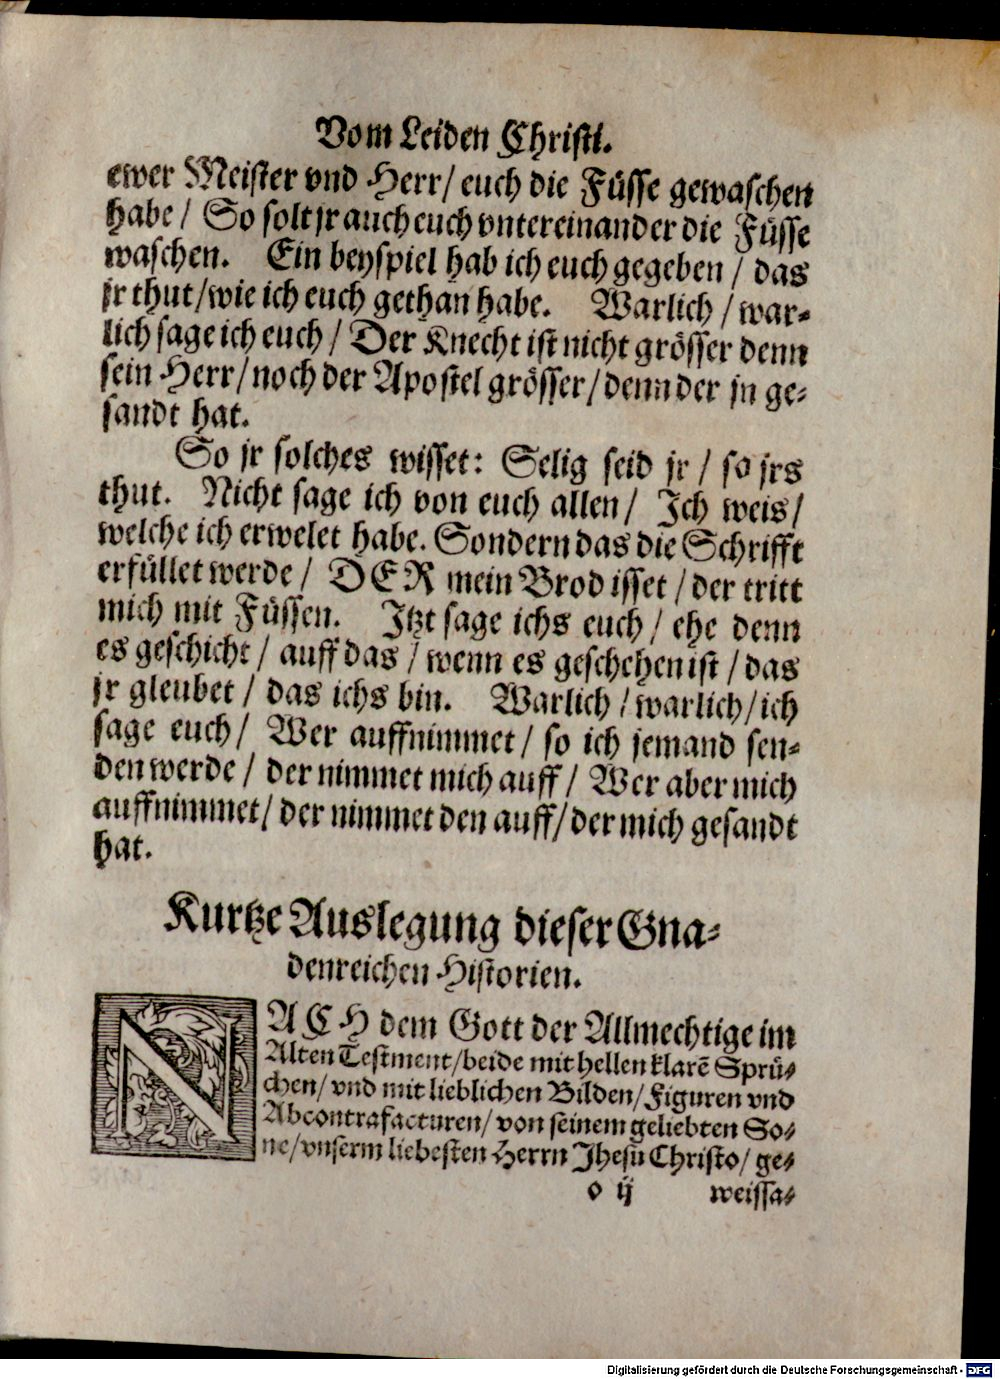 Vom Leiden Christi.
ewer Meister vnd Herr/ euch die Füsse gewaschen
habe/ So solt jr auch euch vntereinander die Füsse
waschen. Ein beyspiel hab ich euch gegeben/ das
jr thut/wie ich euch gethan habe. Warlich/ war-
lich sage ich euch/ Der Knecht ist nicht grösser denn
sein Herr/noch der Apostel grösser/denn der jn ge-
sandt hat.
So jr solches wisset: Selig seid jr/ so jrs
thut. Nicht sage ich von euch allen/ Ich weis/
welche ich erwelet habe. Sondern das die Schrifft
erfüllet werde/ DER mein Brod isset/der tritt
mich mit Füssen. Itzt sage ichs euch/ ehe denn
es geschicht/ auff das/wenn es geschehen ist/das
jr gleubet/ das ichs bin. Warlich/warlich/ich
sage euch/ Wer auffnimmet/ so ich jemand sen-
den werde/ der nimmet mich auff/ Wer aber mich
auffnimmet/ der nimmet den auff/der mich gesandt
hat.
Kurtze Auslegung dieser Gna-
denreichen Historien.
NACH dem Gott der Allmechtige im
Alten Testment/beide mit hellen klarē Sprü-
chen/ vnd mit lieblichen Bilden/Figuren vnd
Abcontrafacturen/ von seinem geliebten So-
ne/vnserm liebesten Herrn Jhesu Christo/ ge-
o ij weissa-
Digitalisierung gefördert durch die Deutsche Forschungsgemeinschaft - DFG